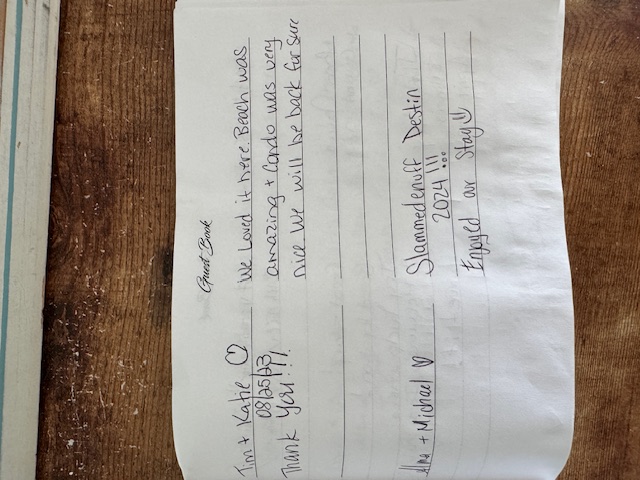 Guest Book
Tim + Katie ♡ We Loved it here. Beach was
08/25/23 amazing + Condo was very
Thank You!!! nice We will be back for sure
Alma + Michael ♡ Slammedenuff Destin
2024!!!
Enjoyed our Stay